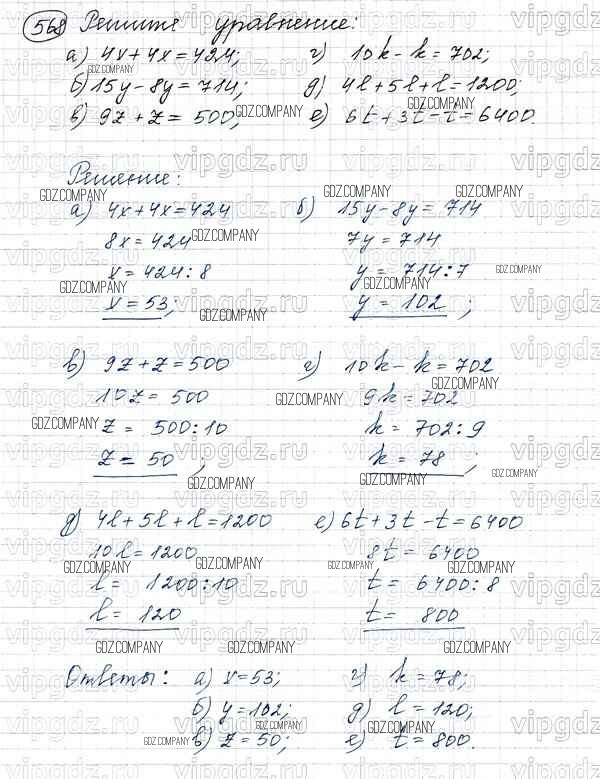 568 Решите уравнение:
а) 4x+4x=424; г) 10k-k=702;
б) 15y-8y=714; д) 4l+5l+l=1200;
в) 9z+z=500; е) 6t+3t-t=6400.
Решение:
а) 4x+4x=424 б) 15y-8y=714
8x=424 7y=714
x=424:8 y=714:7
x=53; y=102;
в) 9z+z=500 г) 10k-k=702
10z=500 9k=702
z=500:10 k=702:9
z=50; k=78;
д) 4l+5l+l=1200 е) 6t+3t-t=6400
10l=1200 8t=6400
l=1200:10 t=6400:8
l=120 t=800
Ответы: а) x=53; г) k=78;
б) y=102; д) l=120;
в) z=50; е) t=800.
vipgdz.ru
GDZ.COMPANY